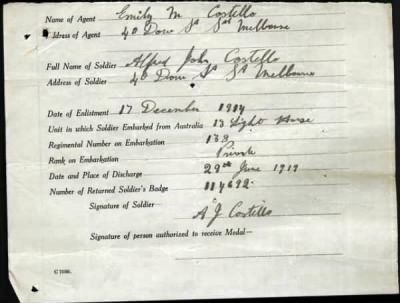 Name of Agent Emily M Costello
Address of Agent 40 Dow St Sth Melbourne
Full Name of Soldier Alfred John Costello
Address of Soldier 40 Dow St Sth Melbourne
Date of Enlistment 17 December 1914
Unit in which Soldier Embarked from Australia 13 Light Horse
Regimental Number on Embarkation 138
Rank on Embarkation Private
Date and Place of Discharge 29th June 1919
Number of Returned Soldier's Badge 114692.
Signature of Soldier
A J Costello
Signature of person authorized to receive Medal—